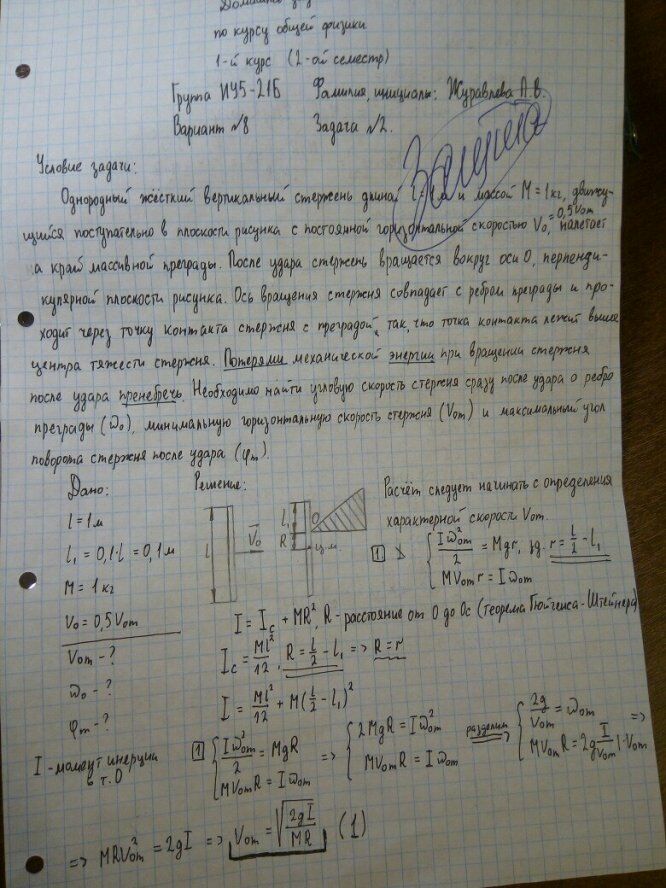 Домашнее
по курсу общей физики
1-й курс (2-ой семестр)
Группа ИУ5-21Б Фамилия, инициалы: Журавлева А.В.
Вариант №8 Задача №2.
Защита
Условие задачи:
Однородный жёсткий вертикальный стержень длиной l=1м и массой M=1кг, движу-
щийся поступательно в плоскости рисунка с постоянной горизонтальной скоростью V₀=0,5V₀m, налетает
а край массивной преграды. После удара стержень вращается вокруг оси О, перпенди-
кулярной плоскости рисунка. Ось вращения стержня совпадает с ребром преграды и про-
ходит через точку контакта стержня с преградой, так, что точка контакта лежит выше
центра тяжести стержня. Потерями механической энергии при вращении стержня
после удара пренебречь. Необходимо найти угловую скорость стержня сразу после удара о ребро
преграды (ω₀), минимальную горизонтальную скорость стержня (V₀m) и максимальный угол
поворота стержня после удара (φm).
Дано:
l=1м
l₁=0,1·l=0,1м
M=1кг
V₀=0,5V₀m
V₀m-?
ω₀-?
φm-?
I-момент инерции
в т.О
Решение:
l V₀ l₁ O R ц.м.
Расчёт следует начинать с определения
характерной скорости V₀m.
1 { Iω₀m²/2 = Mgr, гд. r=l/2-l₁
MV₀m r=Iω₀m
I=Ic+MR², R-расстояние от О до Ос (теорема Гюйгенса-Штейнера)
Ic=Ml²/12, R=l/2-l₁ => R=r
I=Ml²/12+M(l/2-l₁)²
1 { Iω₀m²/2=MgR => { 2MgR=Iω₀m² разделим => { 2g/V₀m=ω₀m =>
MV₀mR=Iω₀m MV₀mR=Iω₀m MV₀mR=2g I/V₀m |·V₀m
=> MRV₀m²=2gI => V₀m=√(2gI/MR) (1)